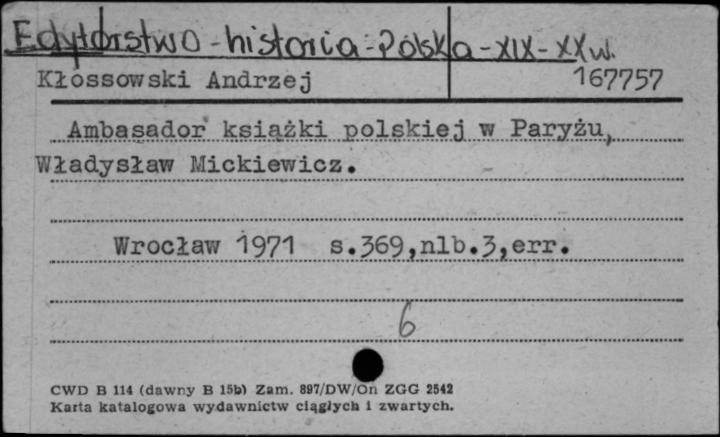 Edytorstwo - historia - Polska - XIX - XX w.
Kłossowski Andrzej 167757
Ambasador książki polskiej w Paryżu,
Władysław Mickiewicz.
Wrocław 1971 s.369,nlb.3,err.
6
CWD B 114 (dawny B 15b) Zam. 897/DW/On ZGG 2542
Karta katalogowa wydawnictw ciągłych i zwartych.